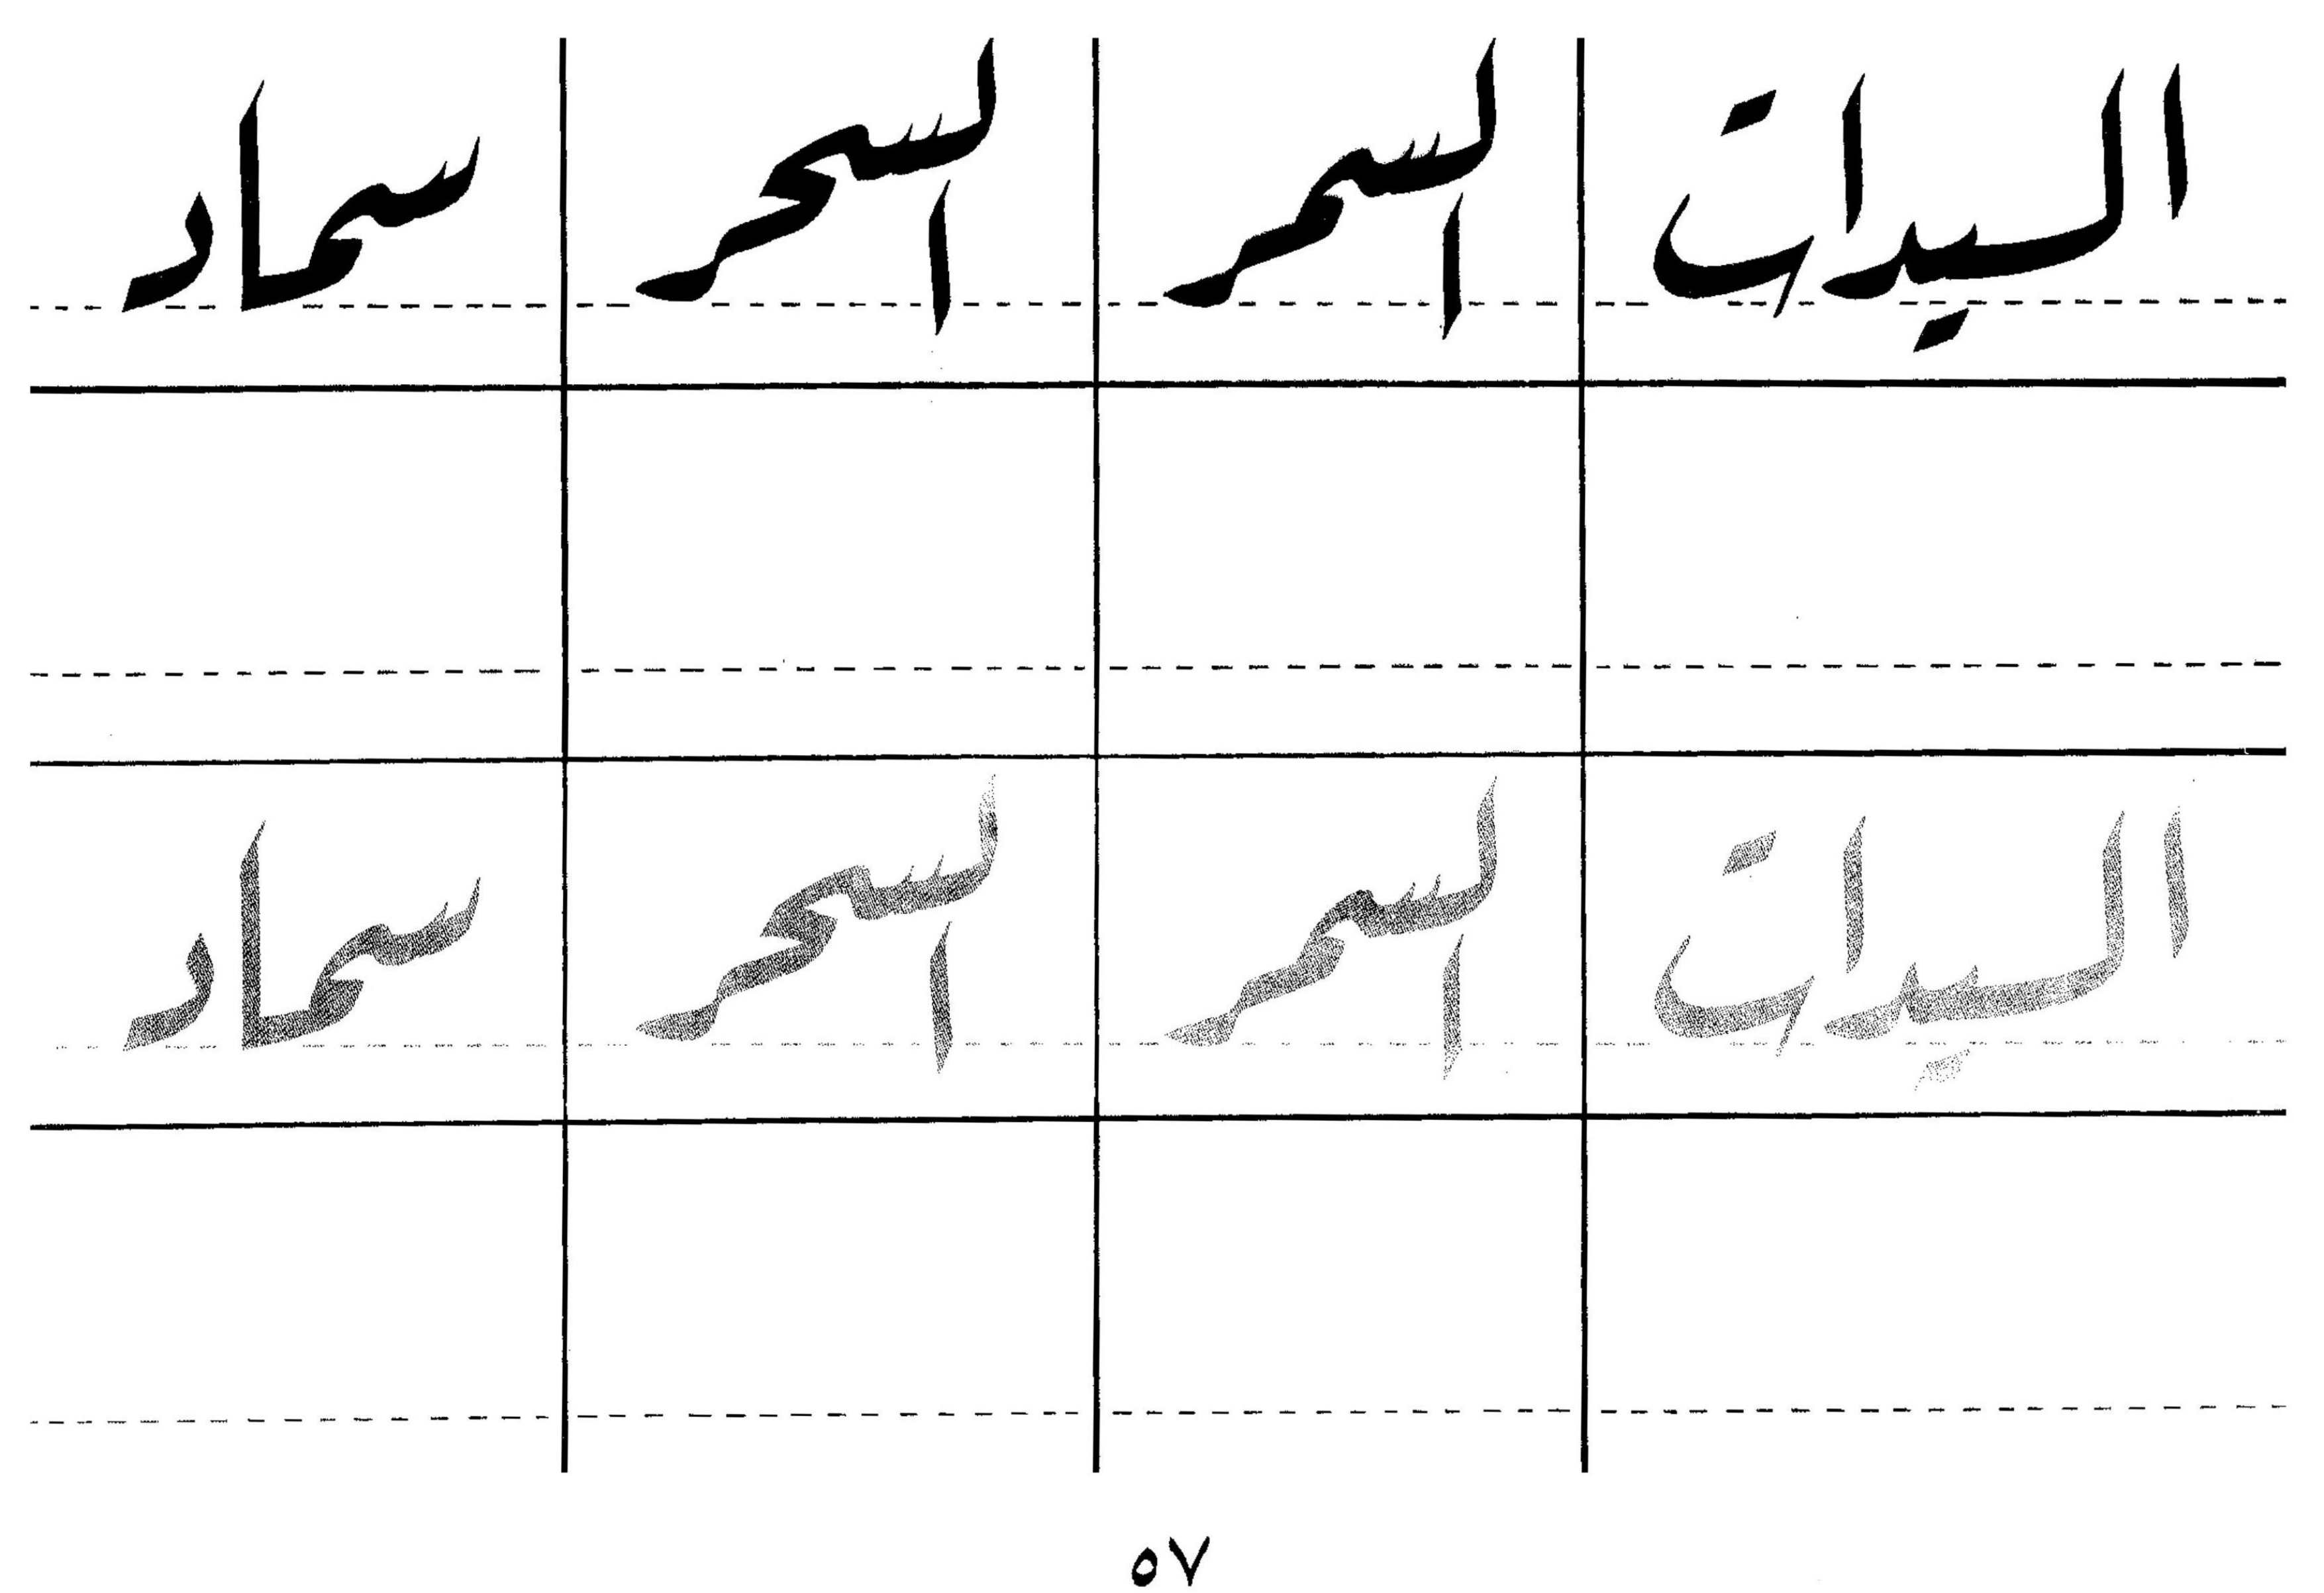 السيدات السمر السحر سماد
السيدات السمر السحر سماد
٥٧